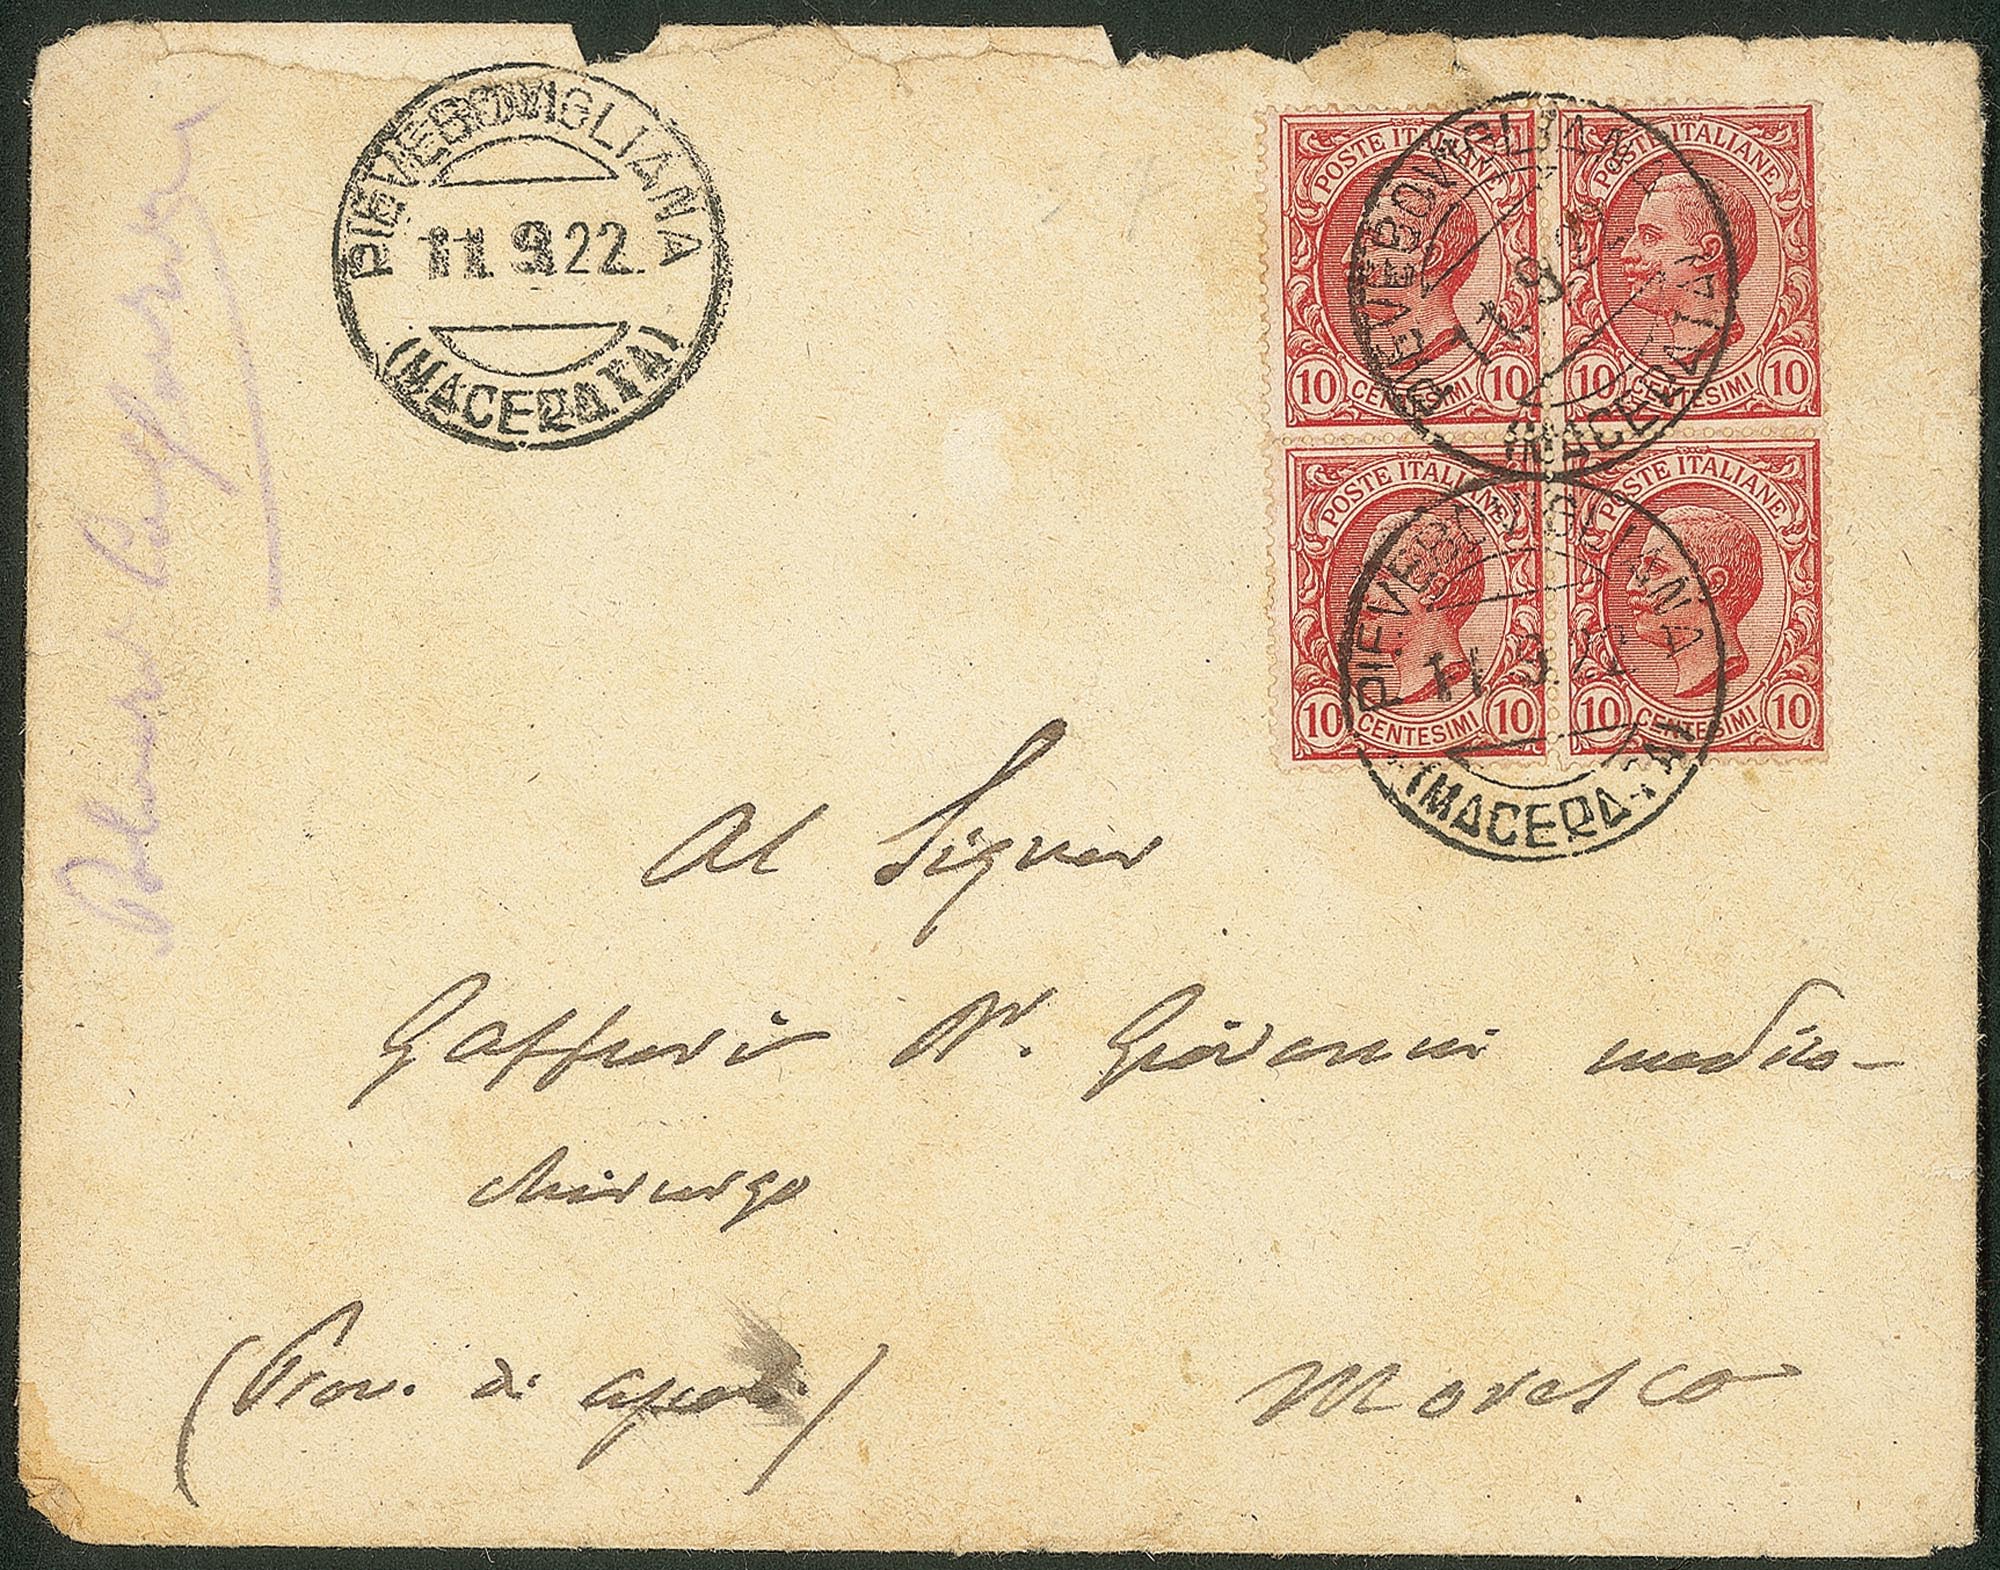 PIEVEBOVIGLIANA
11.9.22
(MACERATA)
POSTE ITALIANE
10 CENTESIMI 10
POSTE ITALIANE
10 CENTESIMI 10
PIEVEBOVIGLIANA
(MACERATA)
POSTE ITALIANE
10 CENTESIMI 10
POSTE ITALIANE
10 CENTESIMI 10
PIEVEBOVIGLIANA
11.9.22
(MACERATA)
Al Signor
Gaffuri Dr. Giovanni medico-
chirurgo
(Prov. di Ascoli) Moresco